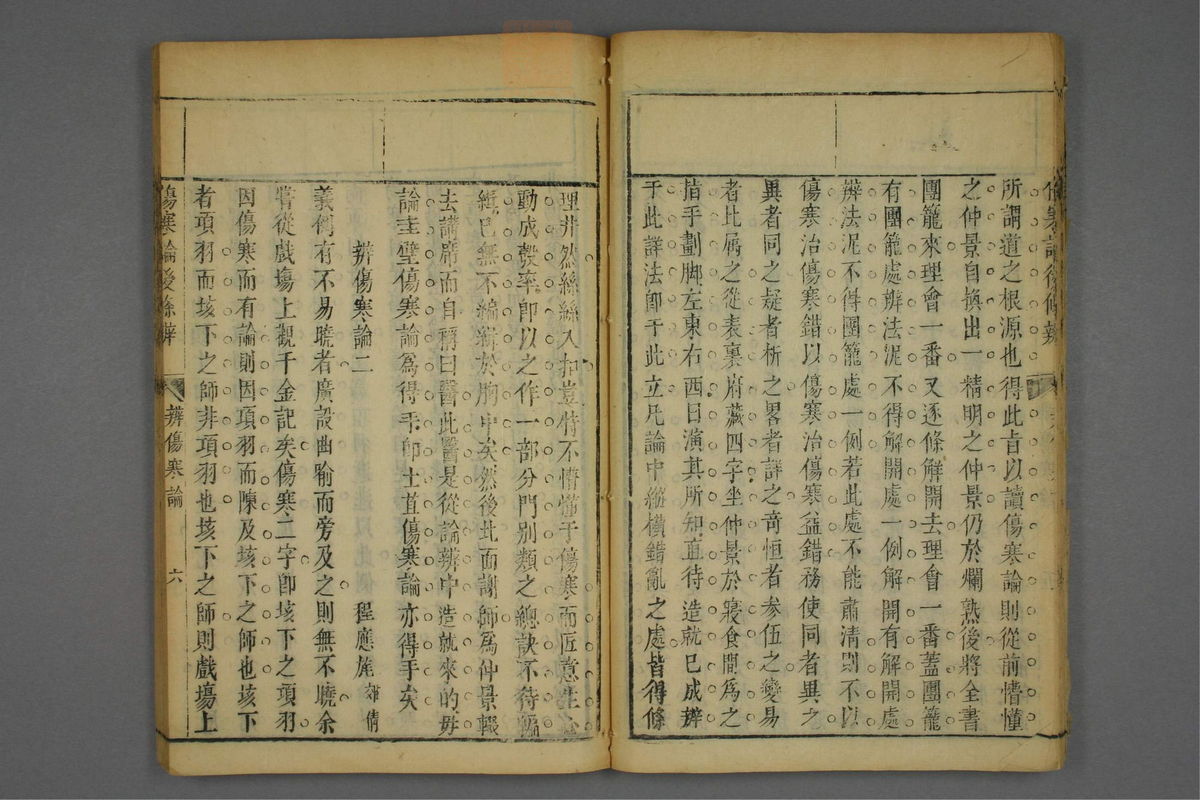 所謂道之根源也得此旨以讀傷寒論則從前懵懂
之仲景自換出一精明之仲景仍於爛熟後將全書
團籠來理會一番又逐條解開去理會一番蓋團籠
有團籠處辨法泥不得解開處一例解開有解開處
辨法泥不得團籠處一例若此處不能肅清則不以
傷寒治傷寒錯以傷寒治傷寒益錯務使同者異之
異者同之疑者析之畧者詳之奇恒者參伍之變易
者比属之從表裏府藏四字坐仲景於寢食間為之
指手劃脚左東右西日演其所知直待造就已成辨
于此詳法即于此立凡論中縱橫錯亂之處皆得條
理井然絲絲入扣豈特不懵懂于傷寒而匠意生
動成彀率即以之作一部分門別類之總訣不待編
緝已無不編緝於胸中矣然後北面謝師為仲景輟
去講席而自稱曰醫此醫是從論辨中造就來的毋
論圭璧傷寒論為得手即土苴傷寒論亦得手矣
辨傷寒論二 程應旄 郊倩
義例有不易曉者廣設曲喻而旁及之則無不曉余
嘗從戲塲上觀千金記矣傷寒二字即垓下之項羽
因傷寒而有論則因項羽而陳及垓下之師也垓下
者項羽而垓下之師非項羽也垓下之師則戲塲上
傷寒論後條辨 辨傷寒論 六